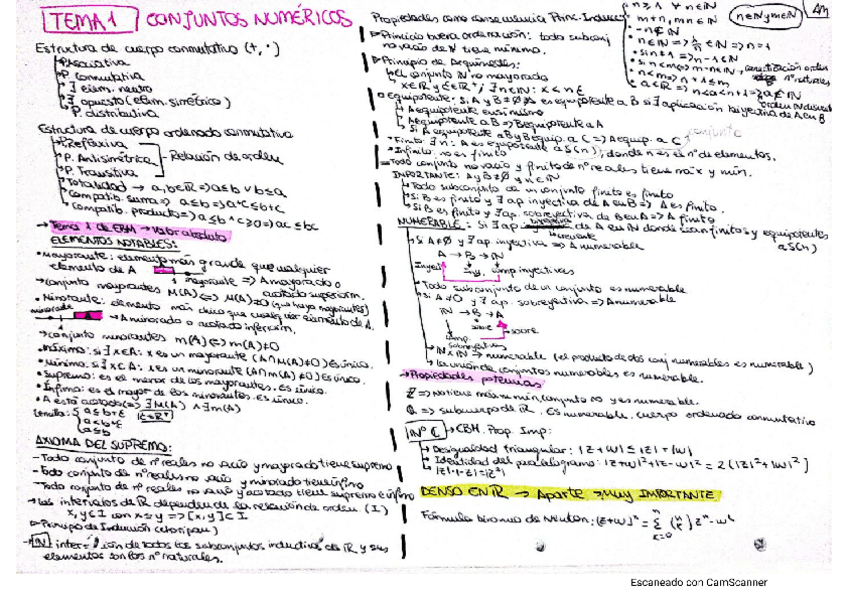 TEMA 1 CONJUNTOS NUMÉRICOS
Estructura de cuerpo conmutativo (+, ·)
P. Asociativa
P. conmutativa
∃ elem. neutro
∃ opuesto (elem. simétrico)
P. distributiva
Estructura de cuerpo ordenado conmutativo
P. Reflexiva
P. Antisimétrica
P. Transitiva
Relación de orden
Totalidad → a, b∈ℝ ⇒ a≤b ∨ b≤a
Compatib. suma ⇒ a≤b ⇒ a+c≤b+c
Compatib. producto ⇒ a≤b ^ c≥0 ⇒ ac≤bc
→ Tema 1 de EBM → Valor absoluto
ELEMENTOS NOTABLES:
• Mayorante: elemento más grande que cualquier
elemento de A
mayorante ⇒ A mayorado o
acotado superiorm.
→ Conjunto mayorantes M(A) ⇔ M(A)≠∅ (que haya mayorantes)
• Minorante: elemento más chico que cualquier elemento de A.
minorante
⇒ A minorado o acotado inferiorm.
→ conjunto minorantes m(A) ⇔ m(A)≠∅
• Máximo: si ∃ x∈A: x es un mayorante (A∩M(A)≠∅) Es único.
• Mínimo: si ∃ x∈A: x es un minorante (A∩m(A)≠∅) Es único.
• Supremo: es el menor de los mayorantes. Es único.
• Ínfimo: es el mayor de los minorantes. Es único.
• A está acotado ⇔ ∃ M(A) ∧ ∃ m(A)
a≤b+ε
a<b+ε
a≤b
AXIOMA DEL SUPREMO:
- Todo conjunto de nº reales no vacío y mayorado tiene supremo
- Todo conjunto de nº reales no vacío y minorado tiene ínfimo
- Todo conjunto de nº reales no vacío y acotado tiene supremo e ínfimo
→ Los intervalos de ℝ dependen de la relación de orden (I)
x, y∈I con x≤y ⇒ [x, y]⊂I
Principio de Inducción
- ℕ intersección de todos los subconjuntos inductivos de ℝ y sus
elementos son los nº naturales.
Propiedades como consecuencia Princ. Inducc.
n≥1 ∀n∈ℕ
m+n, mn∈ℕ
-n∉ℕ
n∈ℕ y m∈ℕ
Principio buena ordenación: todo subconj
no vacío de ℕ tiene mínimo.
Principio de Arquímedes:
El conjunto ℕ no mayorado
Equipotente: Si A y B≠∅ A es equipotente a B si ∃ aplicación biyectiva de A en B
A equipotente a sí mismo
A equipotente a B ⇒ B equipotente a A
Si A equipotente a B y B equip. a C ⇒ A equip. a C
conjunto
• Finito: ∃ n: A es equipotente a S(n), donde n es el nº de elementos.
• Infinito: no es finito
Todo conjunto no vacío y finito de nº reales tiene máx y mín.
IMPORTANTE: A y B≠∅ y n∈ℕ
Todo subconjunto de un conjunto finito es finito
Si B es finito y ∃ ap. inyectiva de A en B ⇒ A es finito.
Si B es finito y ∃ ap. sobreyectiva de B en A ⇒ A finito
NUMERABLE: Si ∃ ap. inyectiva de A en ℕ donde sean finitos y equipotentes
a S(n)
Si A≠∅ y ∃ ap. inyectiva ⇒ A numerable
A → B → ℕ
Inyect Iny. comp inyectivas
• Todo subconjunto de un conjunto es numerable
• Si A≠∅ y ∃ ap. sobreyectiva ⇒ A numerable
ℕ → B → A
sobre
comp. sobreyectivas
sobre
ℕ×ℕ ⇒ numerable (el producto de dos conj numerables es numerable)
La unión de conjuntos numerables es numerable.
→ Propiedades potencias
ℤ ⇒ No tiene máx ni mín, conjunto no vacío y es numerable.
ℚ ⇒ subcuerpo de ℝ. Es numerable. Cuerpo ordenado conmutativo
Nº ℂ → EBM. Prop. Imp:
Desigualdad triangular: |z+w| ≤ |z|+|w|
Identidad del paralelogramo: |z+w|²+|z-w|² = 2(|z|²+|w|²)
DENSO EN ℝ → Aparte → MUY IMPORTANTE
Fórmula binomio de Newton: (z+w)ⁿ =
Escaneado con CamScanner